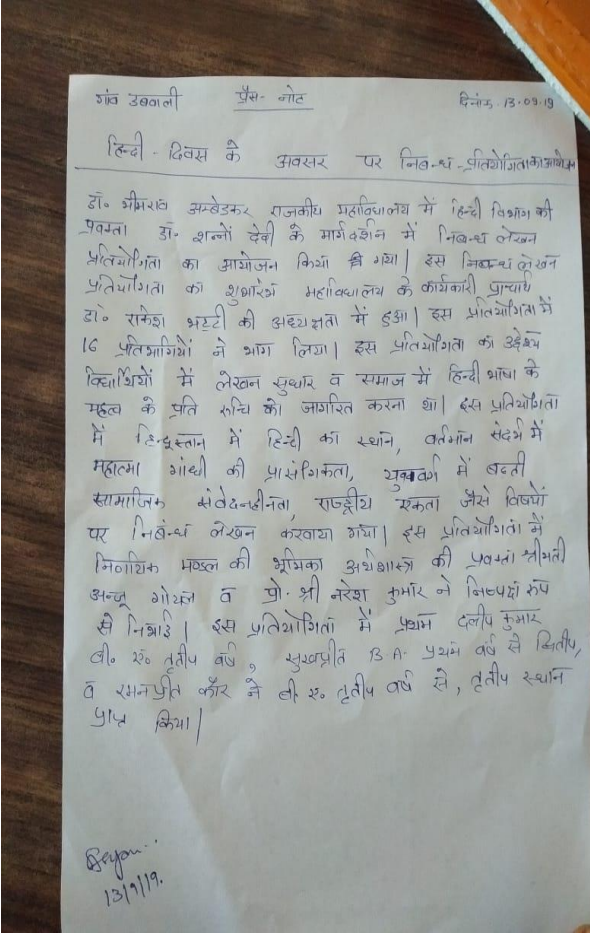 गांव डबवाली प्रैस-नोट दिनांक-13-09-19
हिन्दी-दिवस के अवसर पर निबन्ध-प्रतियोगिता का आयोजन
डॉ॰ भीमराव अम्बेडकर राजकीय महाविद्यालय में हिन्दी विभाग की
प्रवक्ता डॉ॰ शन्नों देवी के मार्गदर्शन में निबन्ध लेखन
प्रतियोगिता का आयोजन किया गया। इस निबन्ध लेखन
प्रतियोगिता का शुभारंभ महाविद्यालय के कार्यकारी प्राचार्य
डॉ॰ राकेश भट्टी की अध्यक्षता में हुआ। इस प्रतियोगिता में
16 प्रतिभागियों ने भाग लिया। इस प्रतियोगिता का उद्देश्य
विद्यार्थियों में लेखन सुधार व समाज में हिन्दी भाषा के
महत्व के प्रति रूचि को जागरित करना था। इस प्रतियोगिता
में हिन्दूस्तान में हिन्दी का स्थान, वर्तमान संदर्भ में
महात्मा गांधी की प्रासंगिकता, युवावर्ग में बढती
सामाजिक संवेदनहीनता, राष्ट्रीय एकता जैसे विषयों
पर निबंन्ध लेखन करवाया गया। इस प्रतियोगिता में
निर्णायक मण्डल की भूमिका अर्थशास्त्र की प्रवक्ता श्रीमती
अन्जू गोयल व प्रो॰ श्री नरेश कुमार ने निष्पक्ष रूप
से निभाई। इस प्रतियोगिता में प्रथम दलीप कुमार
बी॰ ए॰ तृतीय वर्ष, सुखप्रीत B.A. प्रथम वर्ष से द्वितीय,
व रमनप्रीत कौर ने बी ए॰ तृतीय वर्ष से, तृतीय स्थान
प्राप्त किया।
13/9/19.